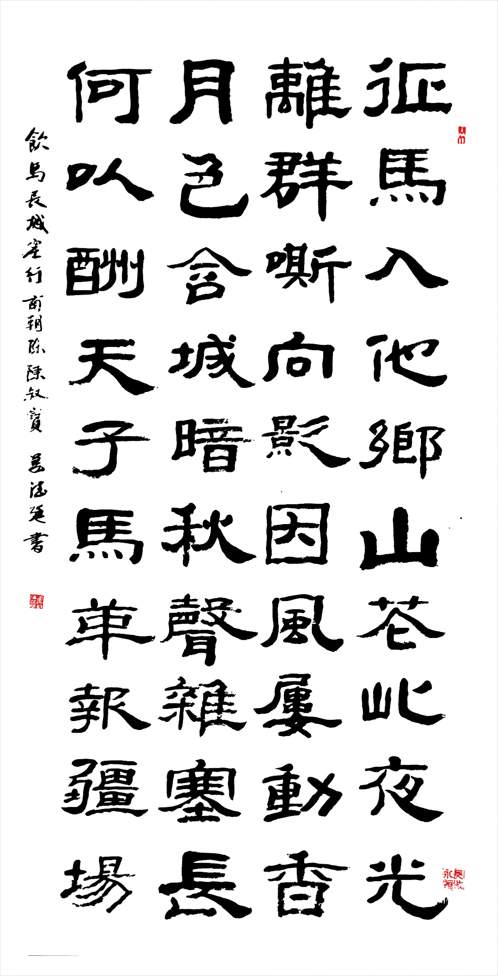 征馬入他鄉山花此夜光
離群嘶向影因風屢動香
月色含城暗秋聲雜塞長
何以酬天子馬革報疆場
飲馬長城窟行 南朝陳陳叔寶 書